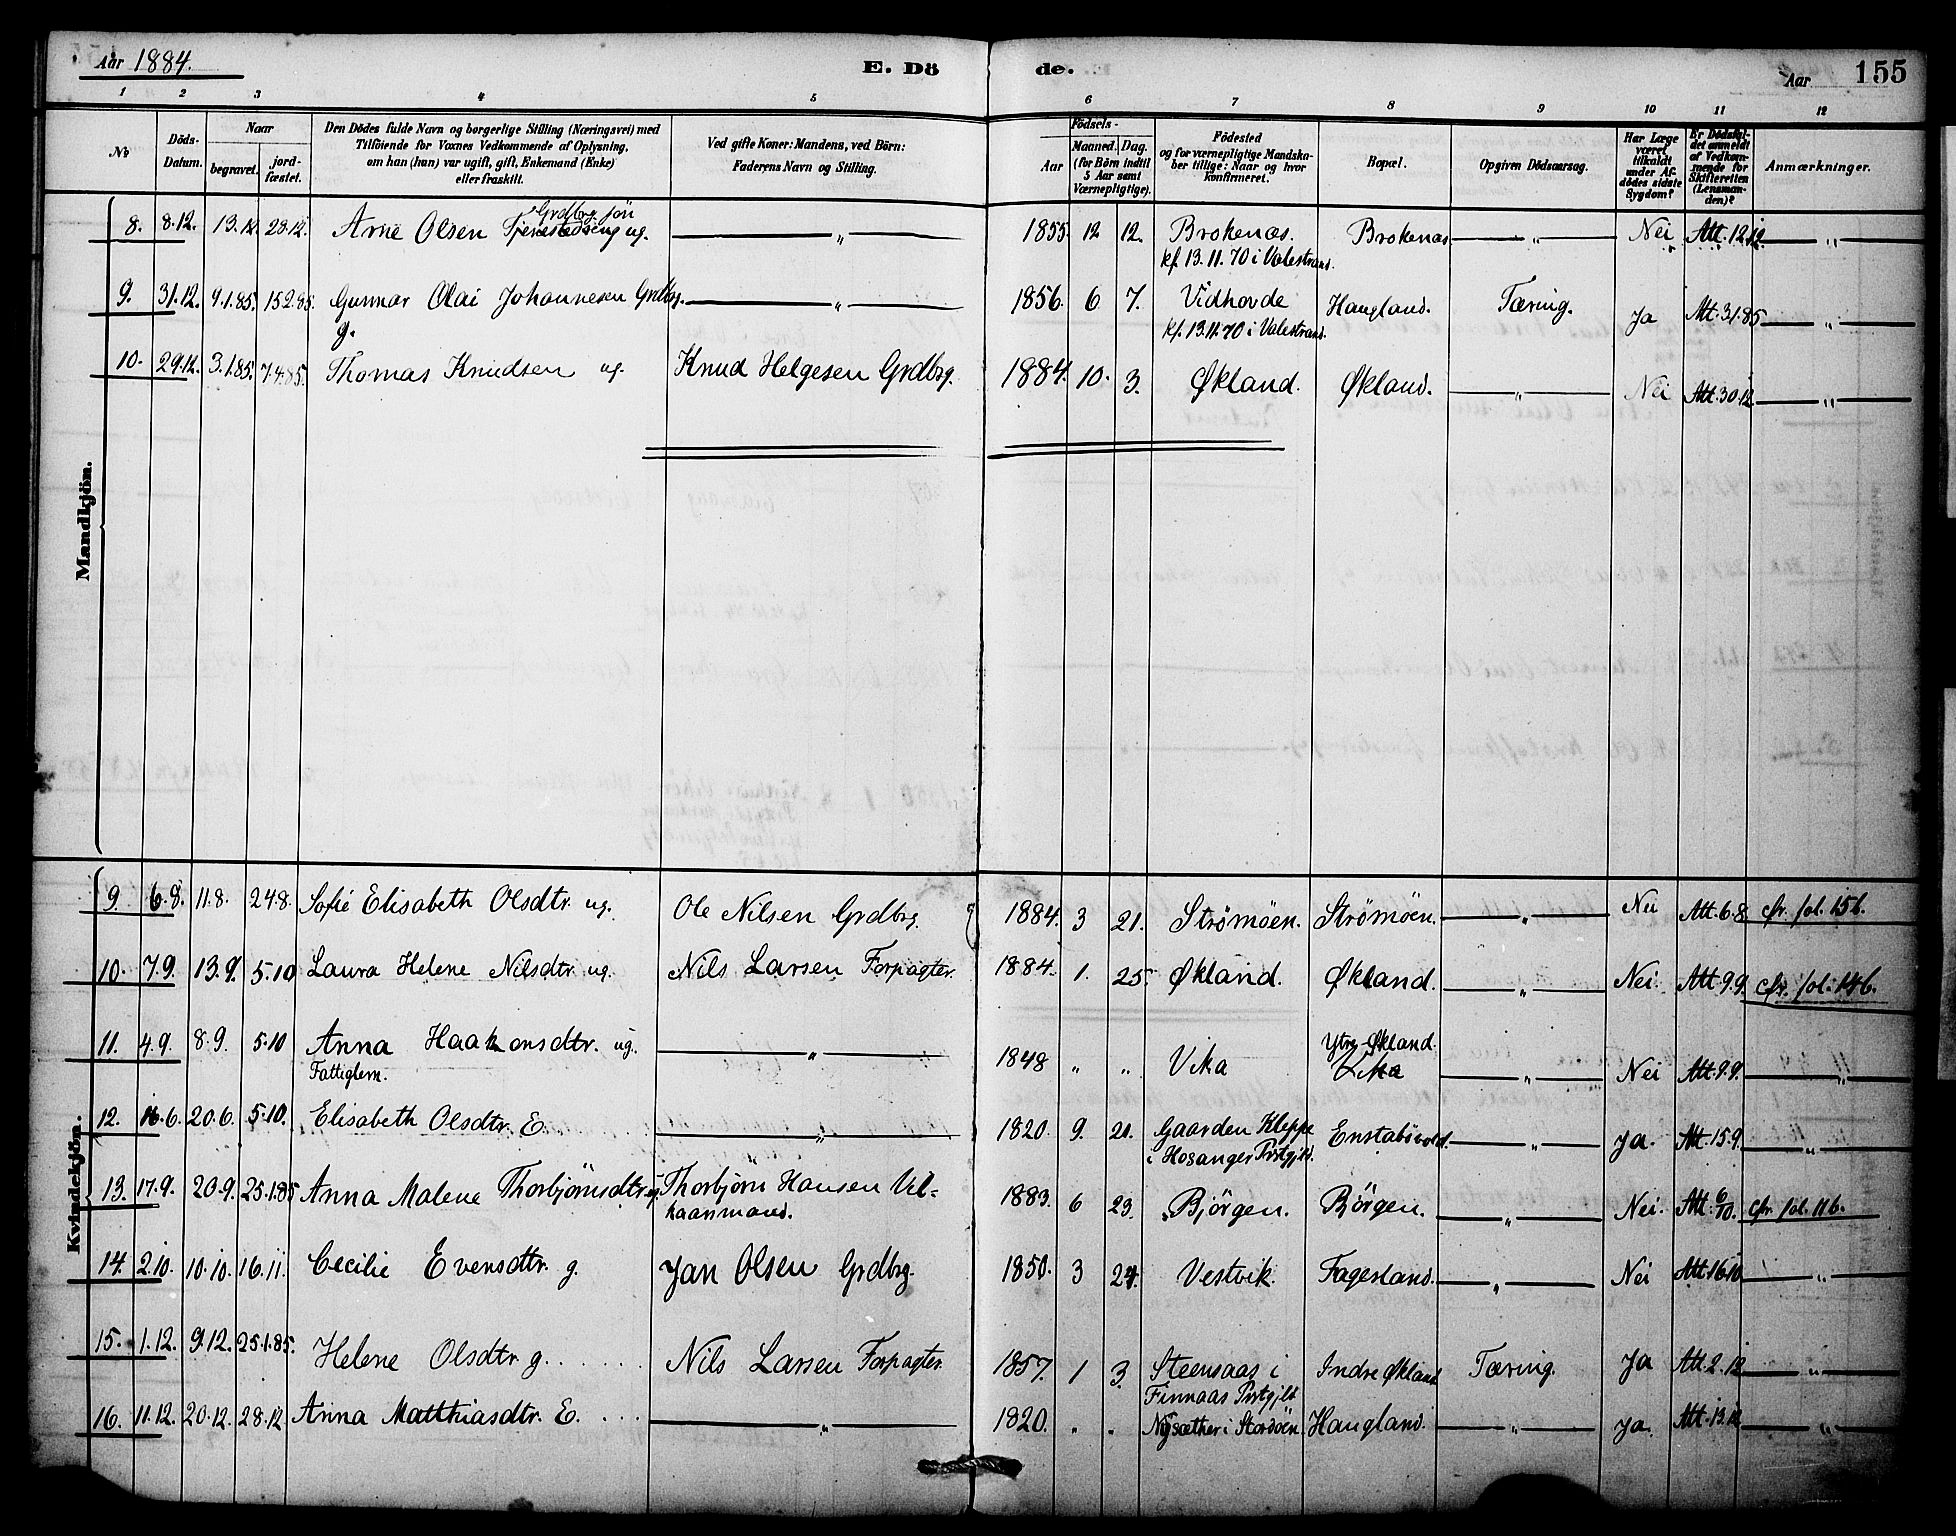 Aar 1884.
E. Dö de.
Aar 155
1 2 3 4 5 6 7 8 9 10 11 12
No
Döds-Datum.
Naar
begravet.
jord-fæstet.
Den Dödes fulde Navn og borgerlige Stilling (Næringsvei) med
Tilföiende for Voxnes Vedkommende af Oplysning,
om han (hun) var ugift, gift, Enkemand (Enke)
eller fraskilt.
Ved gifte Koner: Mandens, ved Börn:
Faderens Navn og Stilling.
Födsels-
Aar
Maaned. Dag.
(for Börn indtil
5 Aar samt
Værnepligtige).
Födested
og for værnepligtige Mandska-
ber tillige: Naar og hvor
konfirmeret.
Bopæl.
Opgiven Dödsaarsag.
Har Læge
været
tilkaldt
under Af-
dödes sidste
Sygdom?
Er Dödsfal-
det anmeldt
af Vedkom-
mende for
Skifteretten
(Lensman-
den)?
Anmærkninger.
Mandkjön.
8. 8.12. 13.12. 28.12. Arne Olsen Grdbrg. sön ug. — „ — 1855 12 12. Brokenæs. Brokenæs. — „ — Nei Att. 12.12. — „ —
kf. 13.11.70 i Valestrand.
9. 31.12. 9.1.85. 15.2.85. Gunnar Olai Johannesen Grdbrg. — „ — 1856. 6 7. Vidhovde Haugland. Tæring. Ja Att. 3.1.85 — „ —
g. kf. 13.11.70 i Valestrand.
10. 29.12. 3.1.85. 7.4.85. Thomas Knudsen ug. Knud Helgesen Grdbrg. 1884. 10. 3. Økland. Økland. — „ — Nei Att. 30.12. — „ —
Kvindekjön.
9. 6.8. 11.8. 24.8. Sofie Elisabeth Olsdtr. ug. Ole Nilsen Grdbrg. 1884. 3 21. Strømöen. Strømöen. — „ — Nei Att. 6.8. cfr. fol. 15b.
10. 7.9. 13.9. 5.10 Laura Helene Nilsdtr. ug. Nils Larsen Forpagter. 1884. 1. 25. Økland. Økland. — „ — Nei. Att. 9.9. cfr. fol. 14b.
11. 4.9. 8.9. 5.10 Anna Haakonsdtr. ug. — „ — 1848 „ „ Vika Ytre Økland. Vika — „ — Nei Att. 9.9. — „ —
Fattiglem.
12. 16.6. 20.6. 5.10. Elisabeth Olsdtr. E. — „ — 1820. 9. 20. Gaarden Kleppe Enstabövold. — „ — Ja. Att. 15.9. „
i Hosanger Prstgjld.
13. 17.9. 20.9. 25.1.85 Anna Malene Thorbjörnsdtr. ug. Thorbjörn Hansen Vil- 1883. 6 23. Bjórgen. Bjórgen. — „ — Nei. Att. 6/10. cfr. fol. 11b.
kaarsmand.
14. 2.10. 10.10. 16.11. Cecilie Evensdtr. g. Jan Olsen Grdbrg. 1850. 3 24. Vestvik. Fagerland. — „ — Nei Att. 16.10 — „ —
15. 1.12. 9.12. 25.1.85. Helene Olsdtr. g. Nils Larsen Forpagter. 1857. 1 3. Steensaas i Indre Økland Tæring. Ja Att. 2.12. — „ —
Finnaas Prstgjld.
16. 11.12. 20.12. 28.12 Anna Matthiasdtr. E. — „ — 1820. „ „ Nysæther i Stordöen. Haugland. — „ — Ja. Att. 13.12. — „ —